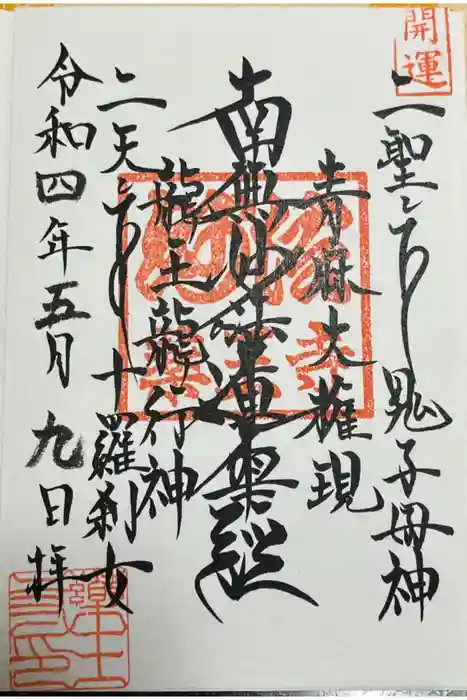 開運
二聖 鬼子母神
青麻大権現
南無妙法蓮華経
龍王龍行神
二天 十羅刹女
令和四年五月九日拝